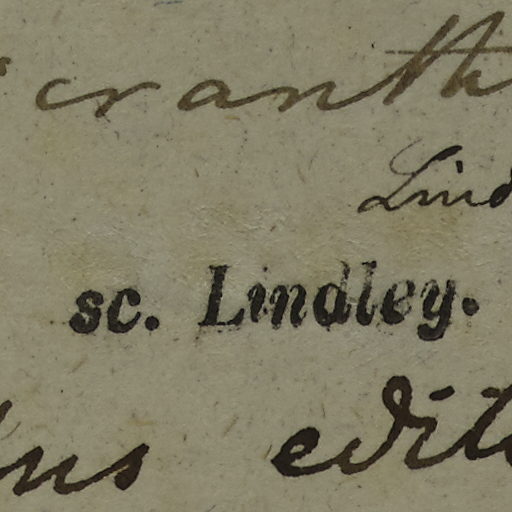 cranth
Lind
sc. Lindley.
us edit